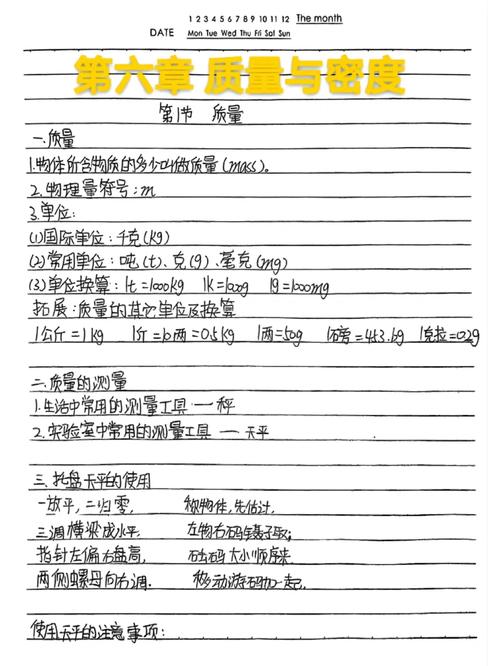 1 2 3 4 5 6 7 8 9 10 11 12 The month
DATE Mon Tue Wed Thu Fri Sat Sun
第六章 质量与密度
第1节 质量
一.质量
1.物体所含物质的多少叫做质量(mass)。
2.物理量符号:m
3.单位:
(1)国际单位:千克(kg)
(2)常用单位:吨(t)、克(g)、毫克(mg)
(3)单位换算:1t=1000kg 1k=1000g 1g=1000mg
拓展:质量的其它单位及换算
1公斤=1kg 1斤=10两=0.5kg 1两=50g 1磅=453.6g 1克拉=0.2g
二.质量的测量
1.生活中常用的测量工具 — 秤
2.实验室中常用的测量工具 — 天平
三.托盘天平的使用
一放平,二归零, 称物体,先估计,
三调横梁成水平. 左物右码镊子取;
指针左偏右盘高, 砝码大小顺序来
两侧螺母向右调. 移动游码加一起.
使用天平的注意事项: